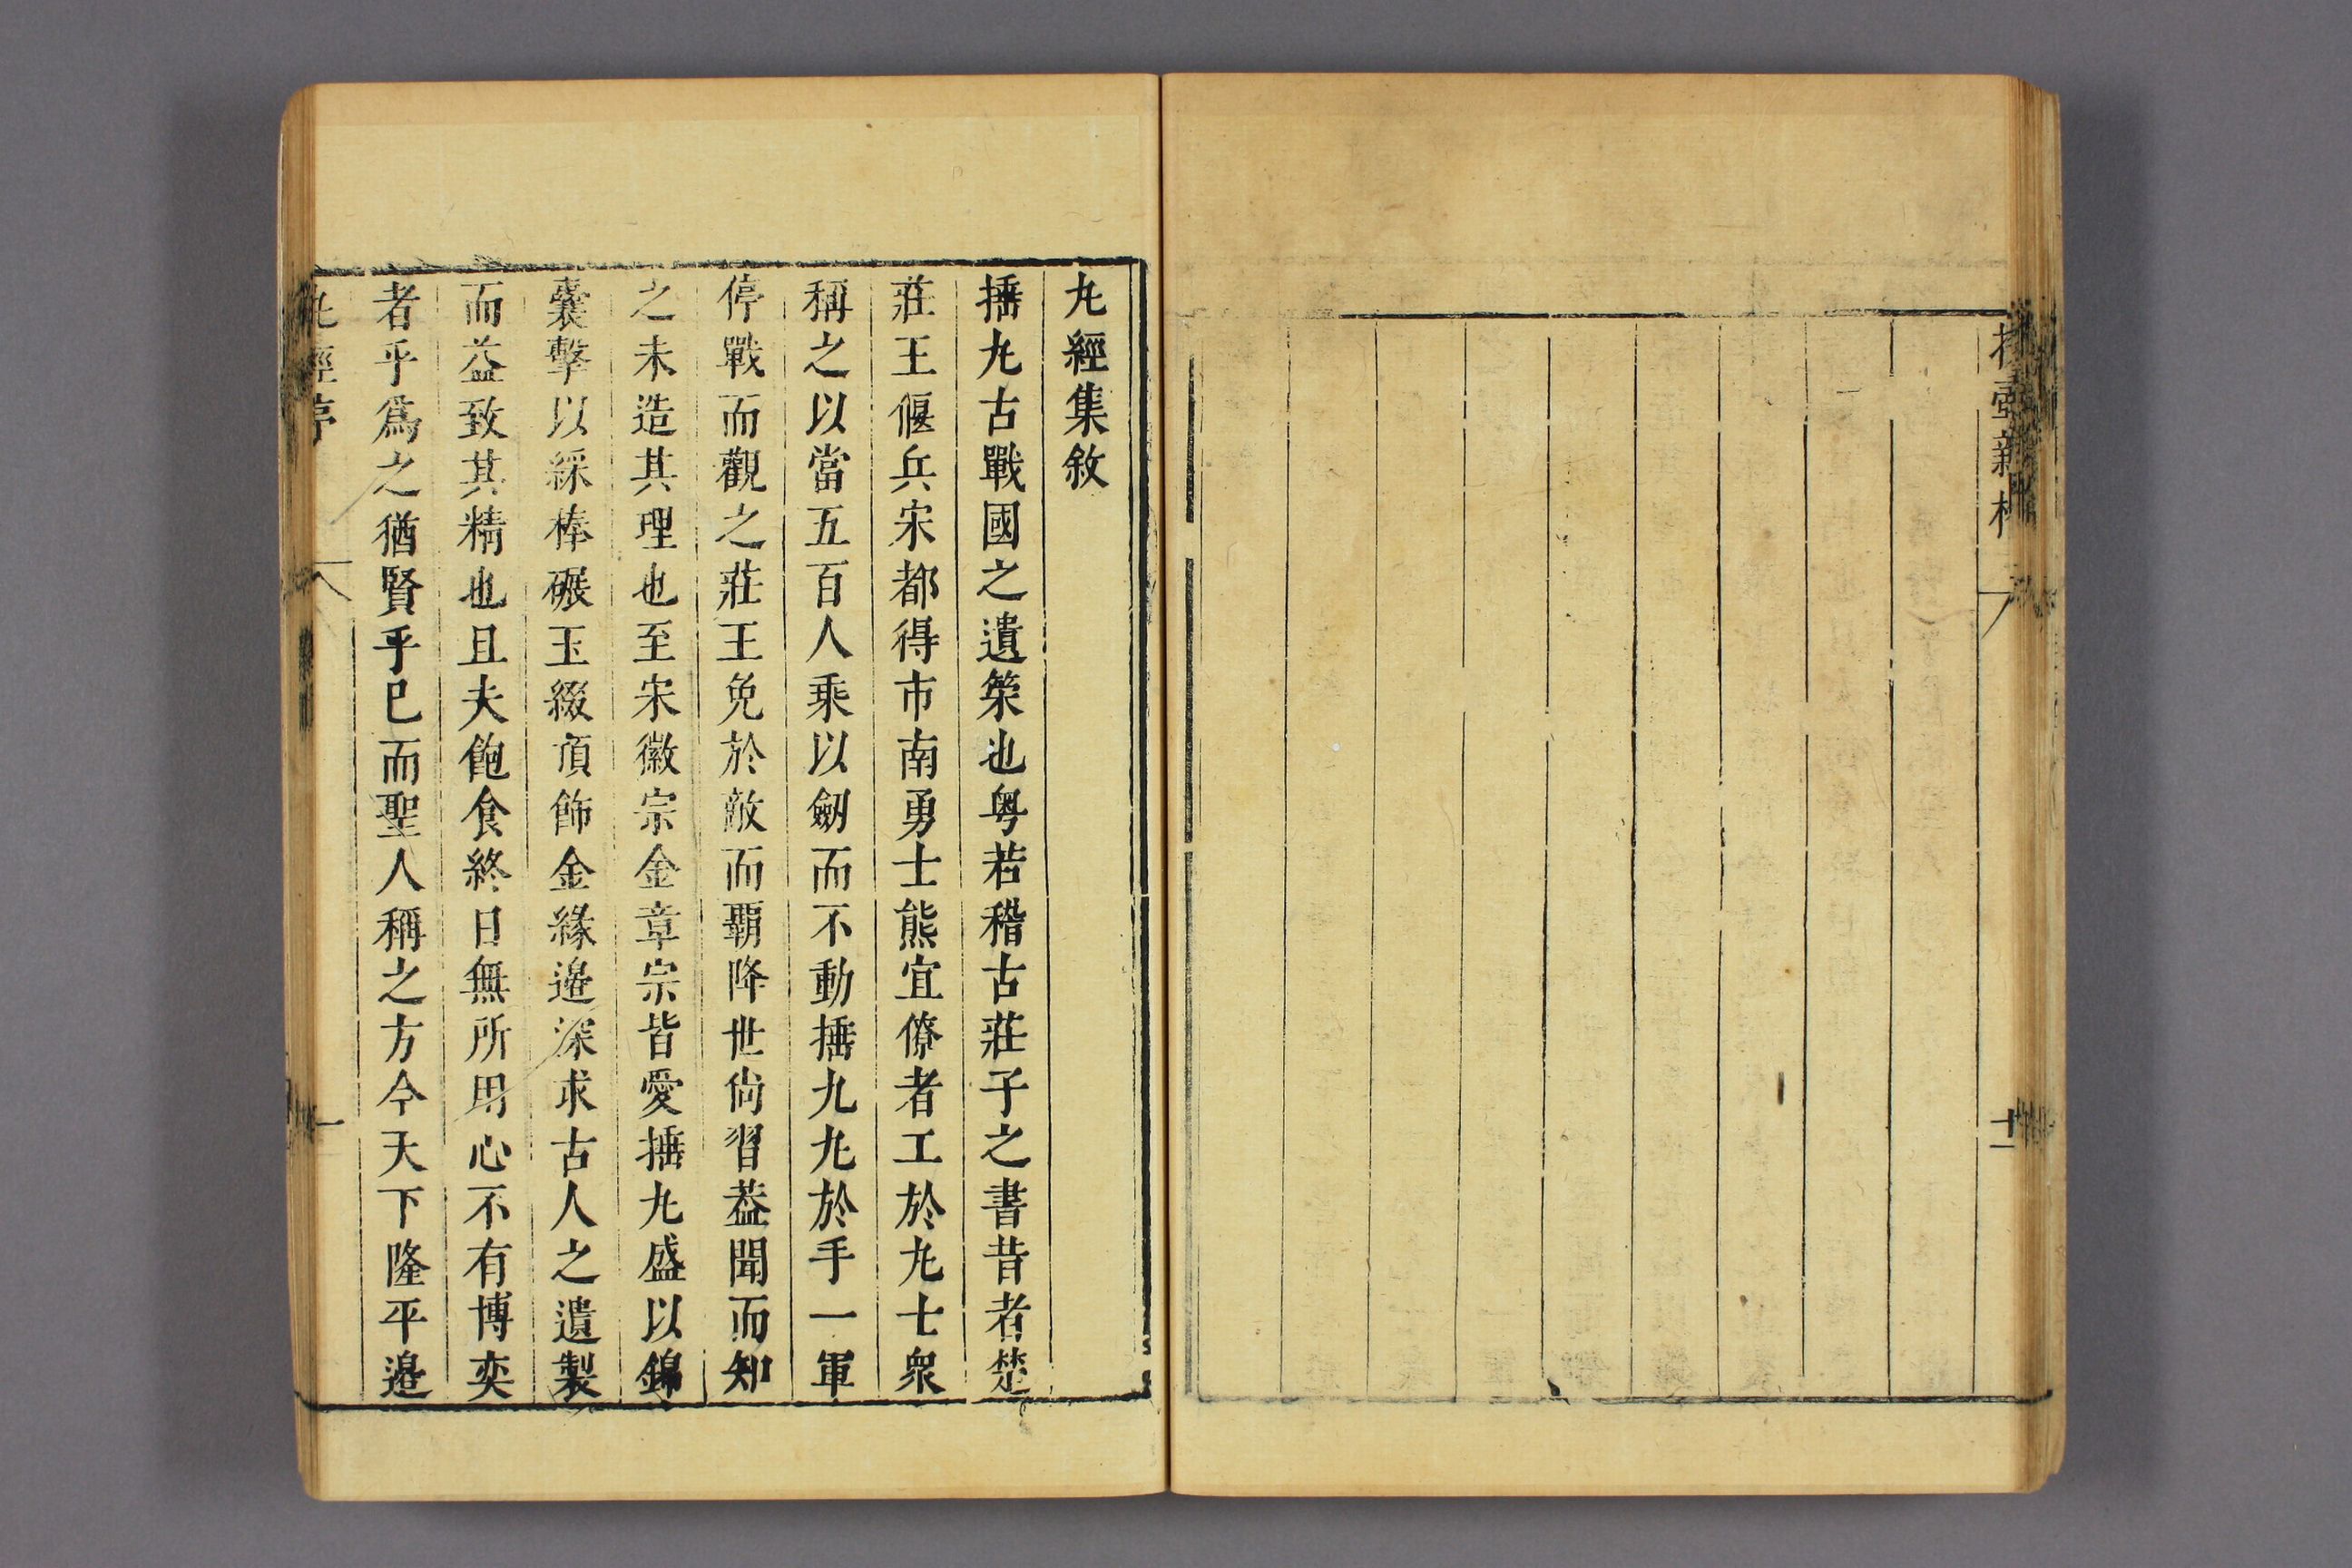 投壺新格
十一
丸經集敘
捶丸古戰國之遺䇿也粤若稽古莊子之書昔者楚
莊王偃兵宋都得市南勇士熊宜僚者工於丸士衆
稱之以當五百人乘以劒而不動捶九丸於手一軍
停戰而觀之莊王免於敵而覇降世尙習葢聞而知
之未造其理也至宋徽宗金章宗皆愛捶丸盛以錦
囊擊以綵棒碾玉綴頂飾金緣邉深求古人之遺製
而益致其精也且夫飽食終日無所用心不有博奕
者乎爲之猶賢乎已而聖人稱之方今天下隆平邉
丸經序
一